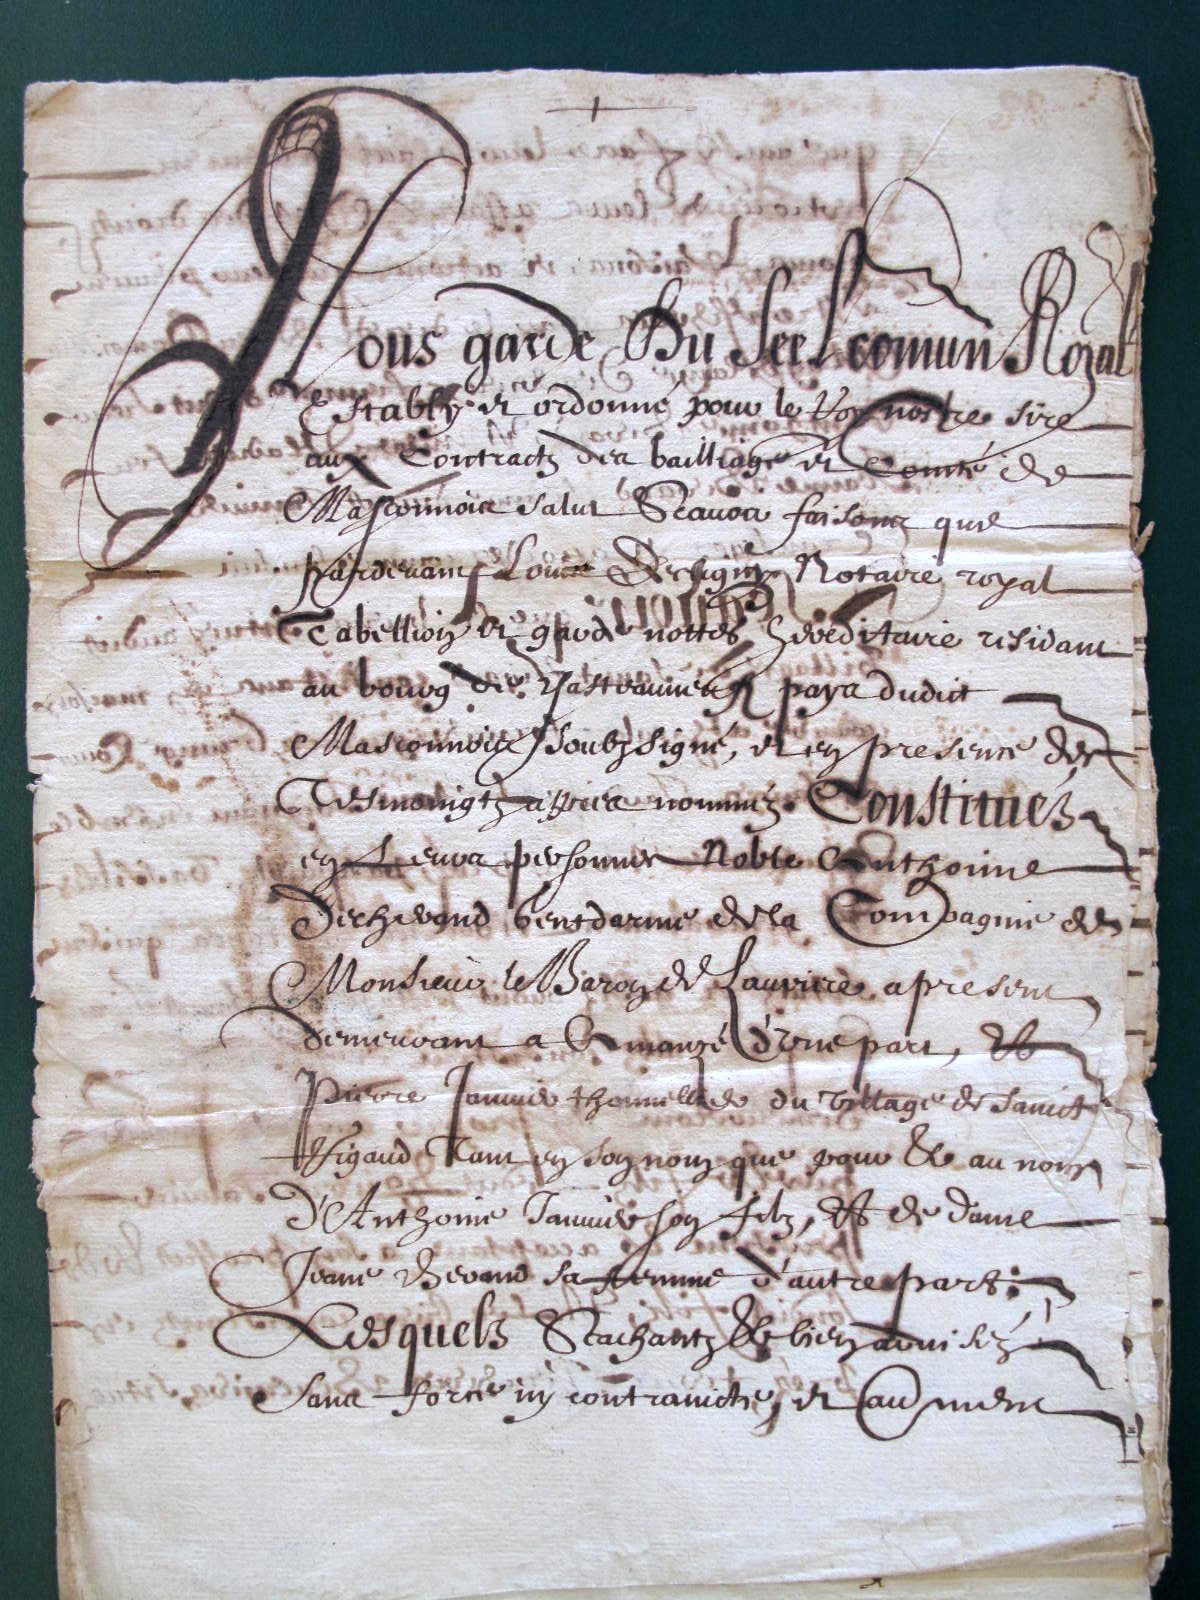 Nous garde Du Seel comun Royal
Estably et ordonné pour le Roy nostre sire
aux Contractz des bailliage et Comté de
Masconnois salut Scauoir faisons que
pardeuant Louis Notaire royal
Tabellion et garde nottes hereditaire residant
au bourg de pays dudict
Masconnois soubzsigné, et en presence des
Tesmoingtz appres nommez. Constituéz
en Leurs personnes Noble Anthoine
Dechevand Gentdarme de la Compagnie de
Monsieur le Baron de Lauriere a present
demeurant a Amanzé d'Vne part, &
Pierre Janvier du village de Sainct
Rigaud Tant en son nom que pour & au nom
D'Anthoine Januier son filz, & de dame
Jeane sa femme d'autre part:
Lesquelz Scachantz & bien aduiséz
sans force ny contraincte, et